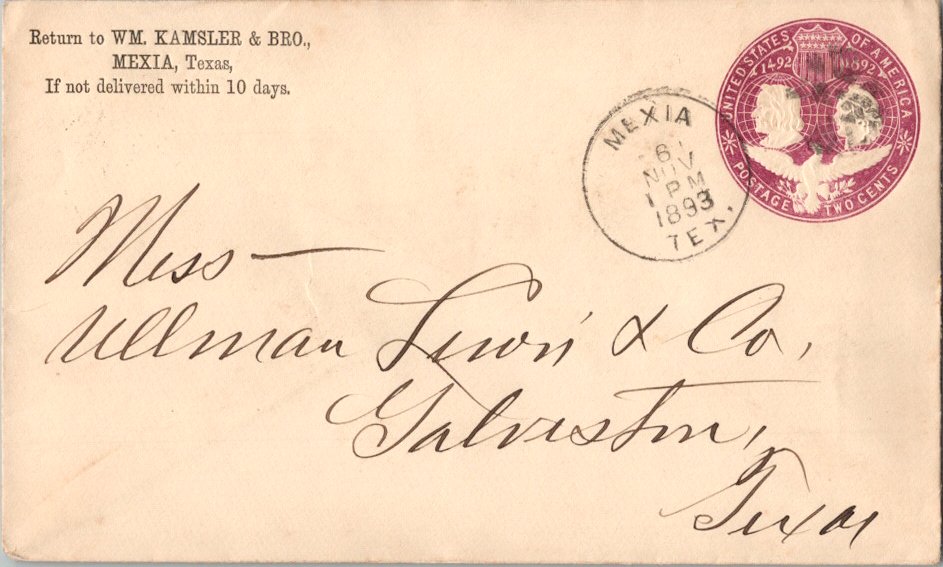 Return to WM. KAMSLER & BRO.,
MEXIA, Texas,
If not delivered within 10 days.
UNITED STATES OF AMERICA
1492 1892
POSTAGE TWO CENTS
MEXIA
6
NOV
1 PM
1893
TEX.
Mess
Ullman Lewis & Co.
Galveston,
Texas